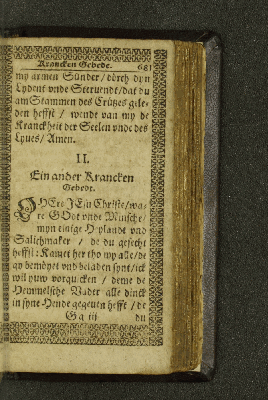 Krancken Gebede. 681
my armen Sünder / dörch dyn
Lydent vnde Steruent / dat du
am Stammen des Crützes gele-
den heffst / wende van my de
Kranckheit der Seelen vnde des
Lyues / Amen.
II.
Ein ander Krancken
Gebede.
O HEre JEsu Christe / wa-
re GOdt vnde Minsche /
myn einige Heylandt vnd
Salichmaker / de du gesecht
heffst: Kamet her tho my alle / de
gy bemöyet vnd beladen synt / ick
wil yuw vorquicken / deme de
Hemmelsche Vader alle dinck
in syne Hende gegeuen hefft / de
Gg iii du